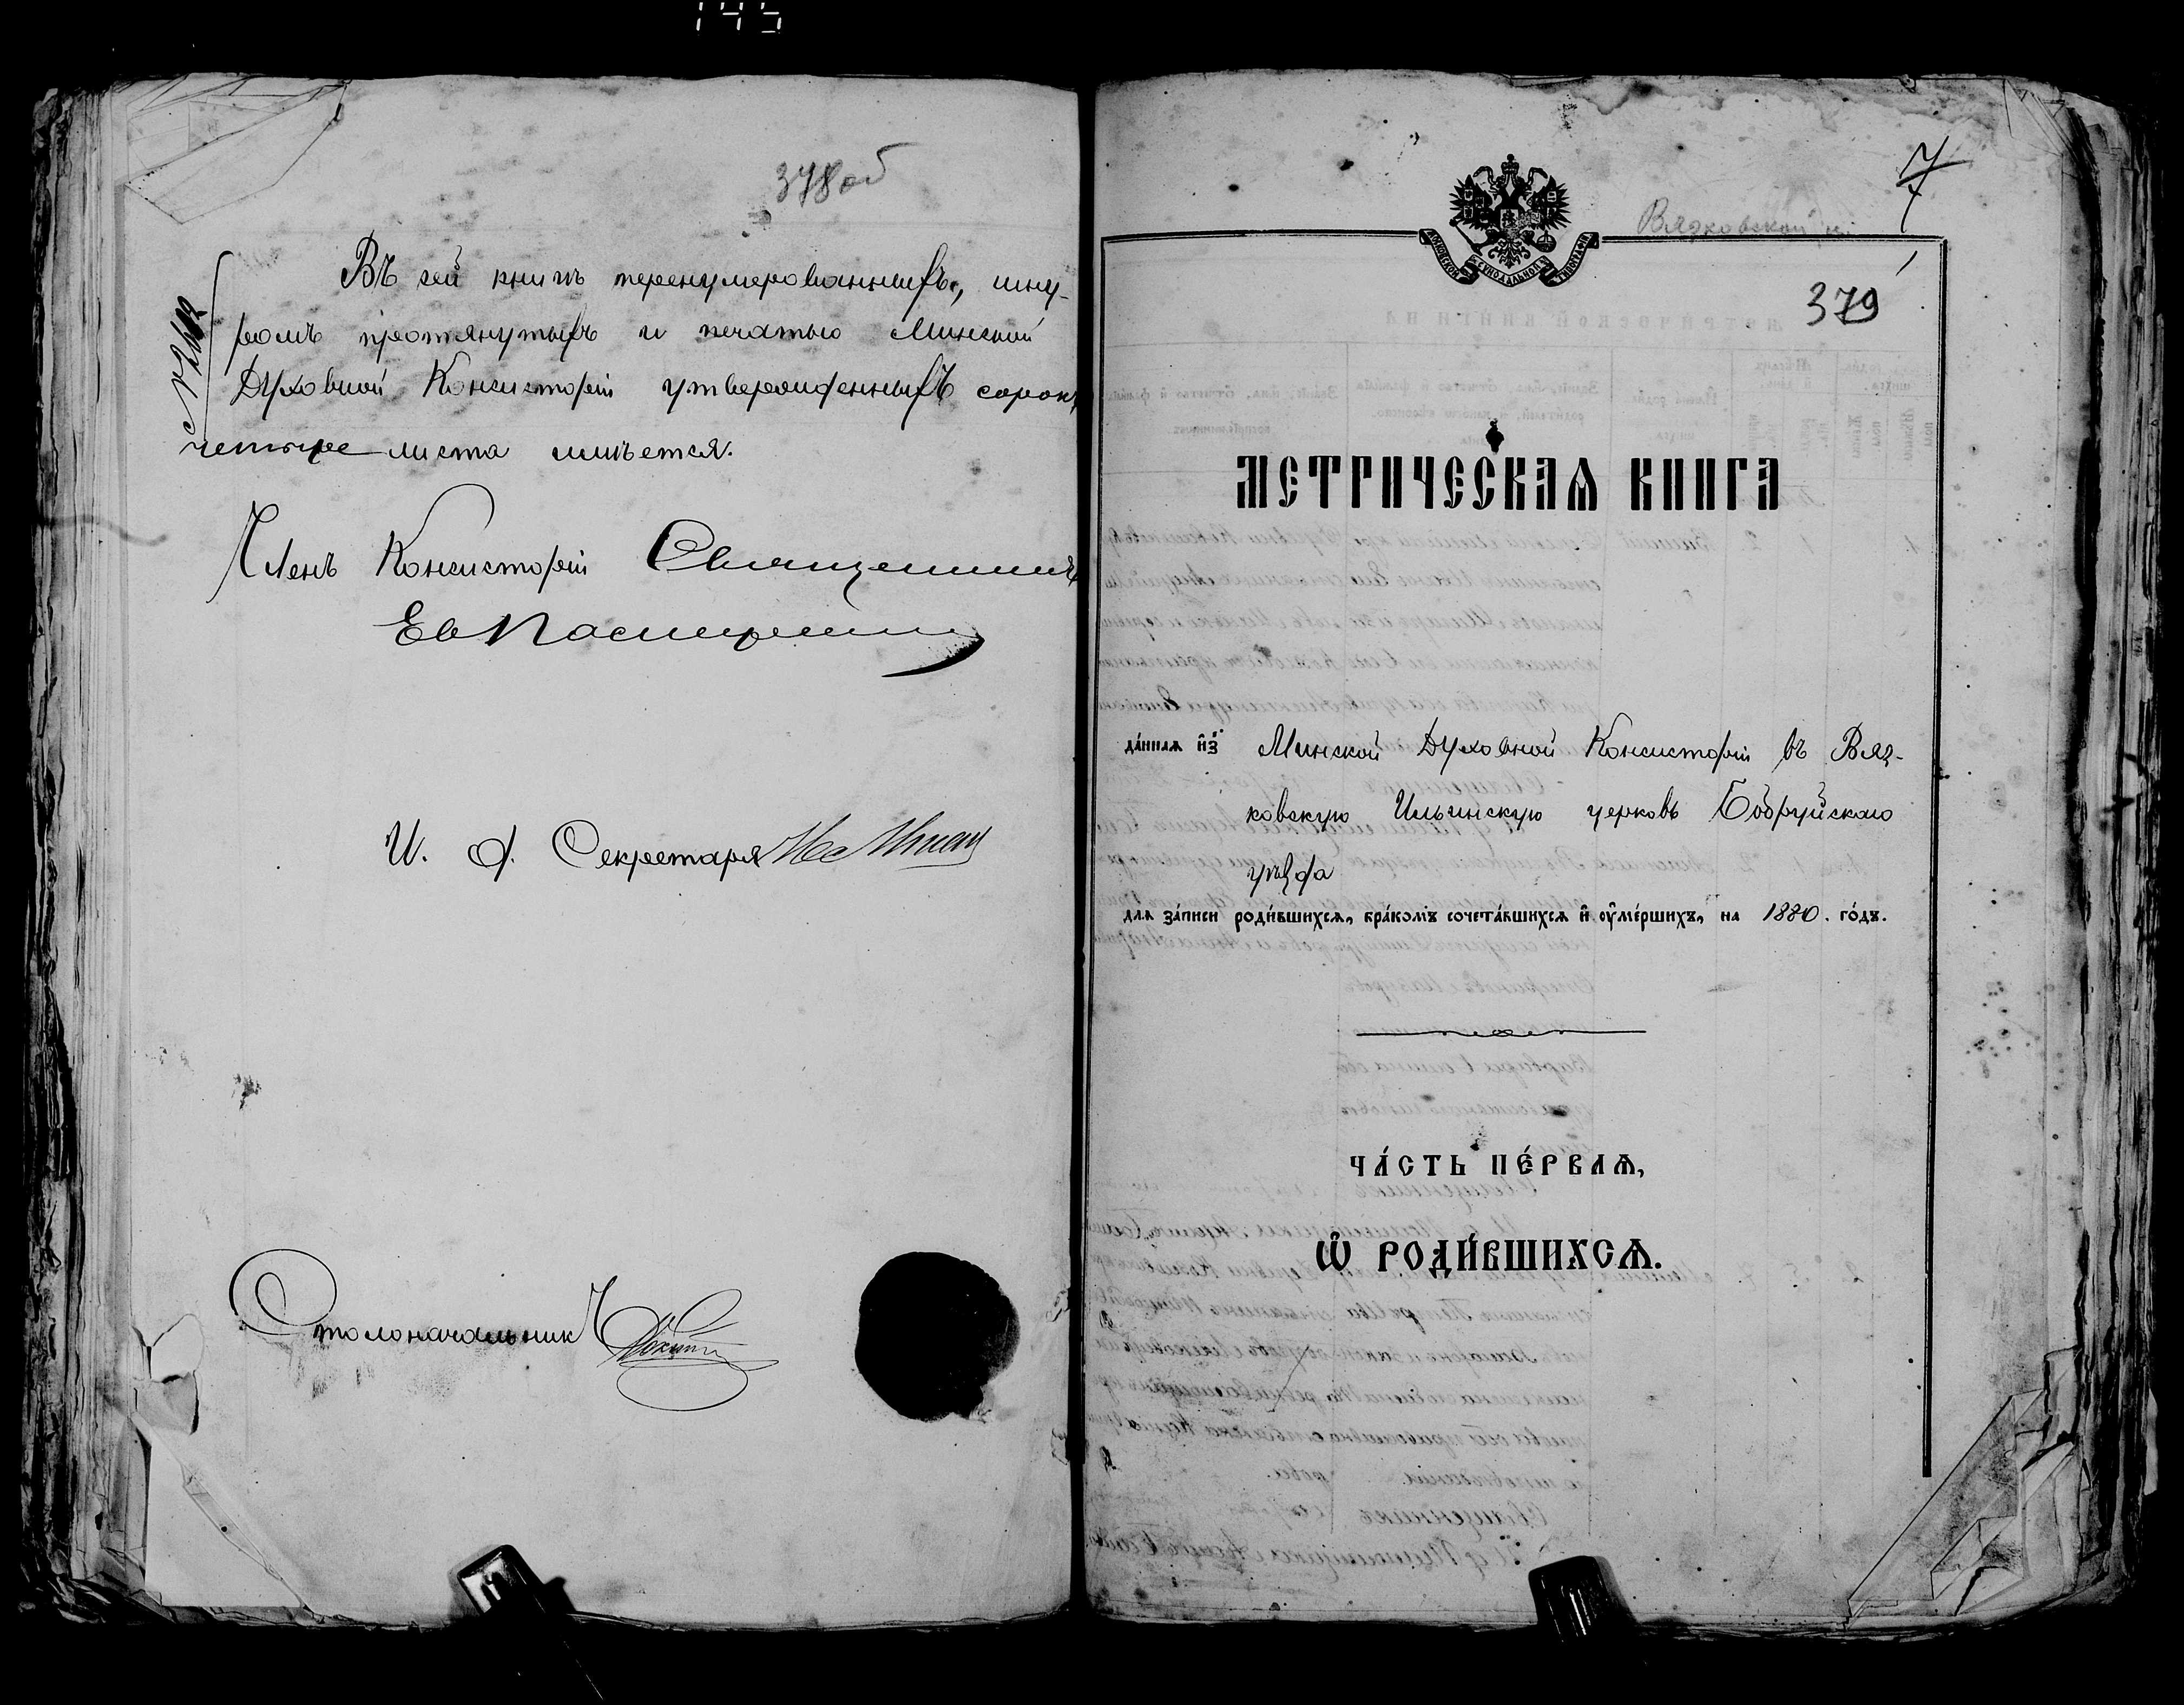 145
378 об
Въ сей книгѣ перенумерованныхъ, шну-
ромъ протянутыхъ и печатью Минской
Духовной Консисторіи утвержденныхъ сорокъ
четыре листа имѣется.
Членъ Консисторіи Священникъ
И. д. Секретаря
Столоначальникъ
7
Вязковской ц.
МОСКОВСКОЙ СѴНОДАЛЬНОЙ ТИПОГРАФІИ
379
МЕТРИЧЕСКАѦ КНИГА
да́ннаѧ и҆з̾ Минской Духовной Консисторіи въ Вяз-
ковскую Ильинскую церковь Бобруйскаго
уѣзда
длѧ за́писи роди́вшихсѧ, бра́комъ сочета́вшихсѧ и҆ ᲂу҆ме́ршихъ, на 1880. го́дъ.
ЧА́СТЬ ПЕ́РВАѦ,
Ѽ РОДИ́ВШИХСѦ.